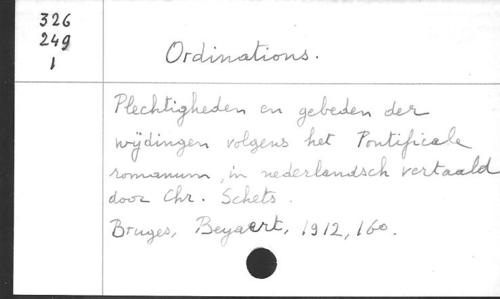 326
249
1
Ordinations.
Plechtigheden en gebeden der
wijdingen volgens het Pontificale
romanum, in nederlandsch vertaald
door Chr. Schets.
Bruges, Beyaert, 1912, 16º.